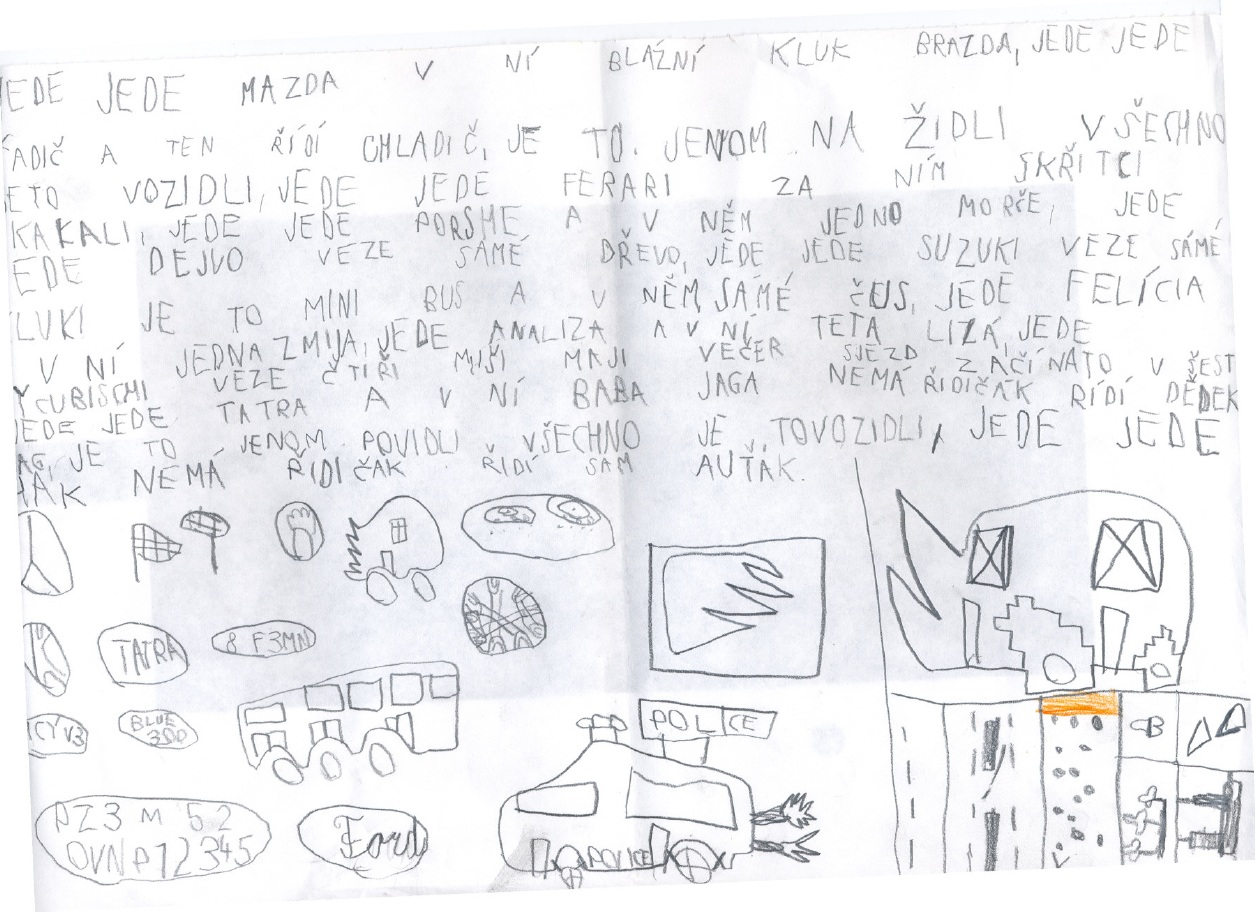 EDE JEDE MAZDA V NÍ BLÁZNÍ KLUK BRAZDA, JEDE JEDE
ADIČ A TEN ŘÍDÍ CHLADIČ, JE TO. JENOM NA ŽIDLI VŠECHNO
ETO VOZIDLI, JEDE JEDE FERARI ZA NÍM SKŘITCI
KAKALI, JEDE JEDE PORSHE A V NĚM JEDNO MORČE, JEDE
EDE DEJVO VEZE SÁMÉ DŘEVO, JEDE JEDE SUZUKI VEZE SÁMÉ
LUKI JE TO MINI BUS A V NĚM SÁMÉ ČUS, JEDE FELÍCIA
V NÍ JEDNA ZMIJA, JEDE ANALIZA A V NÍ TETA LIZA, JEDE
YCUBISCHI VEZE ČTIŘI MIŠI MAJI VEČER SJEZD ZAČÍNATO V ŠEST
JEDE JEDE TATRA A V NÍ BABA JAGA NEMÁ ŘIDIČÁK RÍDÍ DĚDEK
AG, JE TO JENOM POVIDLI VŠECHNO JE TOVOZIDLI, JEDE JEDE
ŤÁK NEMÁ ŘÍDIČÁK ŘÍDÍ SÁM AUŤÁK.
TATRA
8 F3MN
CÝV3
BLUE
3DD
POLICE
PZ3 M 52
OVNP12345
Ford
POLICE